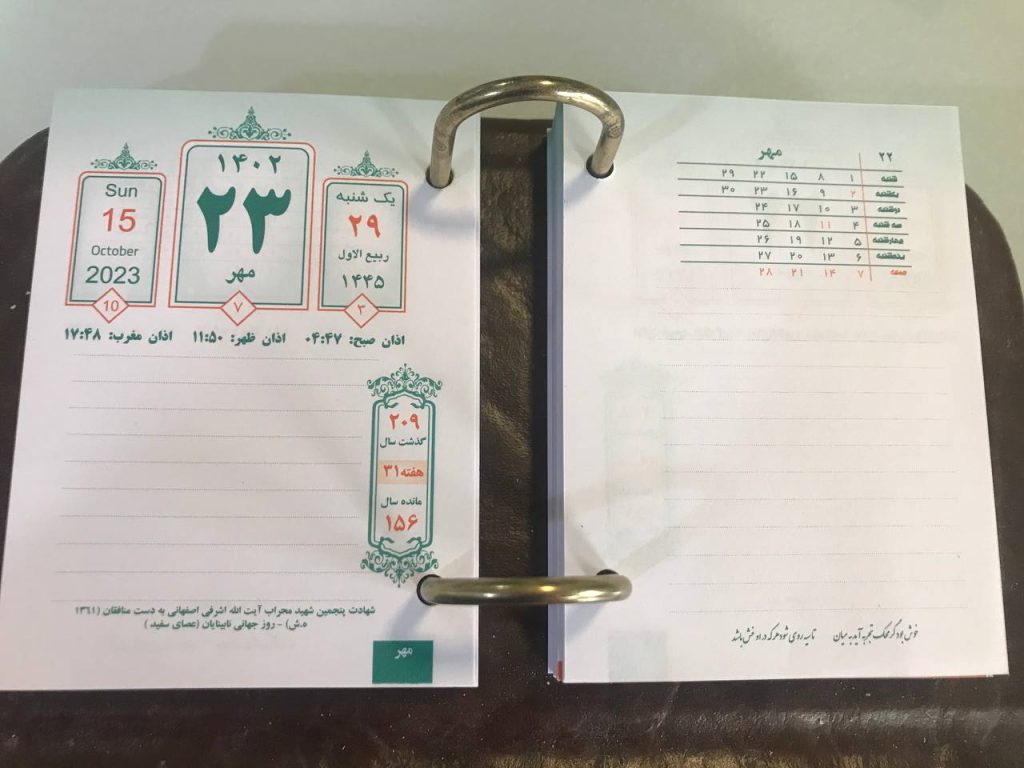 Sun
15
October
2023
10
۱۴۰۲
۲۳
مهر
۷
یک شنبه
۲۹
ربیع الاول
۱۴۴۵
۳
اذان صبح: ۰۴:۴۷ اذان ظهر: ۱۱:۵۰ اذان مغرب: ۱۷:۴۸
۲۰۹
گذشت سال
هفته ۳۱
مانده سال
۱۵۶
شهادت پنجمین شهید محراب آیت الله اشرفی اصفهانی به دست منافقان (۱۳۶۱
ه.ش) - روز جهانی نابینایان (عصای سفید )
مهر
۲۲ مهر
شنبه ۱ ۸ ۱۵ ۲۲ ۲۹
یکشنبه ۲ ۹ ۱۶ ۲۳ ۳۰
دوشنبه ۳ ۱۰ ۱۷ ۲۴
سه شنبه ۴ ۱۱ ۱۸ ۲۵
چهارشنبه ۵ ۱۲ ۱۹ ۲۶
پنجشنبه ۶ ۱۳ ۲۰ ۲۷
جمعه ۷ ۱۴ ۲۱ ۲۸
خوش بود گر محک تجربه آید به میان تا سیه روی شود هر که در او غش باشد